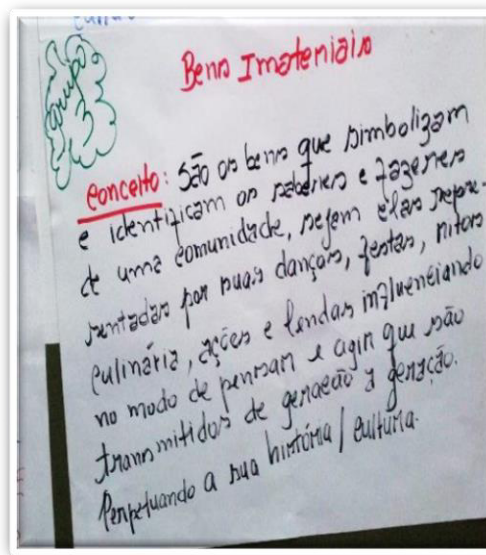 Grupo
3
Bens Imateriais
Conceito: São os bens que simbolizam
e identificam os saberes e fazeres
de uma comunidade, sejam elas repre-
sentadas por suas danças, festas, mitos
culinária, ações e lendas influenciando
no modo de pensar e agir que são
transmitidos de geração a geração.
Perpetuando a sua história / cultura.